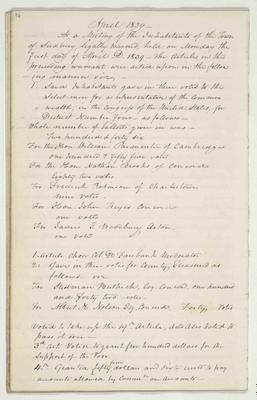 April 1839 -
At a Meeting of the Inhabitants of the Town
of Sudbury legally warned, held on Monday the
first day of April A.D. 1839. the Articles in the
preceding warrant were acted upon in the follow
ing manner, viz,
1. Said Inhabitants gave in their votes to the
Selectmen for a representative of the Common
wealth, in the Congress of the United States, for
District Number Four as follows -
Whole number of ballots given in was -
Two hundred & forty six
For the Hon William Parmenter of Cambridge
one hundred & fifty five votes
For the Hon Nathan Brooks of Concord
eighty two votes
For Frederick Robinson of Charlestown
nine votes
For Hon John Keyes Concord
one vote
For James T. Woodbury Acton
one vote
1. Article chose Col. D. Fairbank Moderator
2. Gave in their votes for County Treasurer as
follows viz
For Stedman Buttrick Esq Concord, one hundred
and forty two votes
For Albert H. Nelson Esq. Concord Forty, votes
Voted to take up the 19th Article, and also voted to
pass it over -
3rd Art. Voted to grant four hundred dollars for the
Support of the Poor
4th Granted fifty four dollars and six cents to pay
amounts allowed by Committ on Accounts